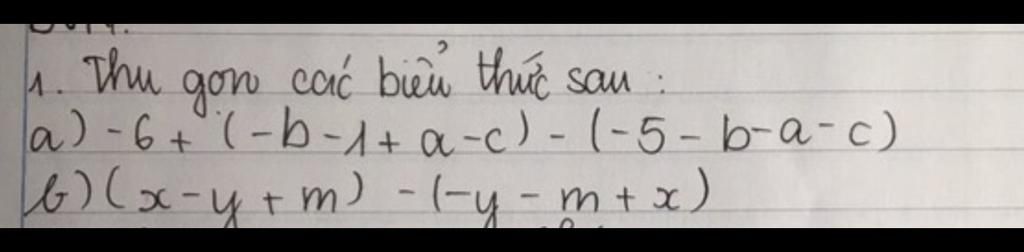 1. Thu gọn các biểu thức sau :
a) -6 + (-b-1+a-c) - (-5-b-a-c)
b) (x-y+m) - (-y-m+x)